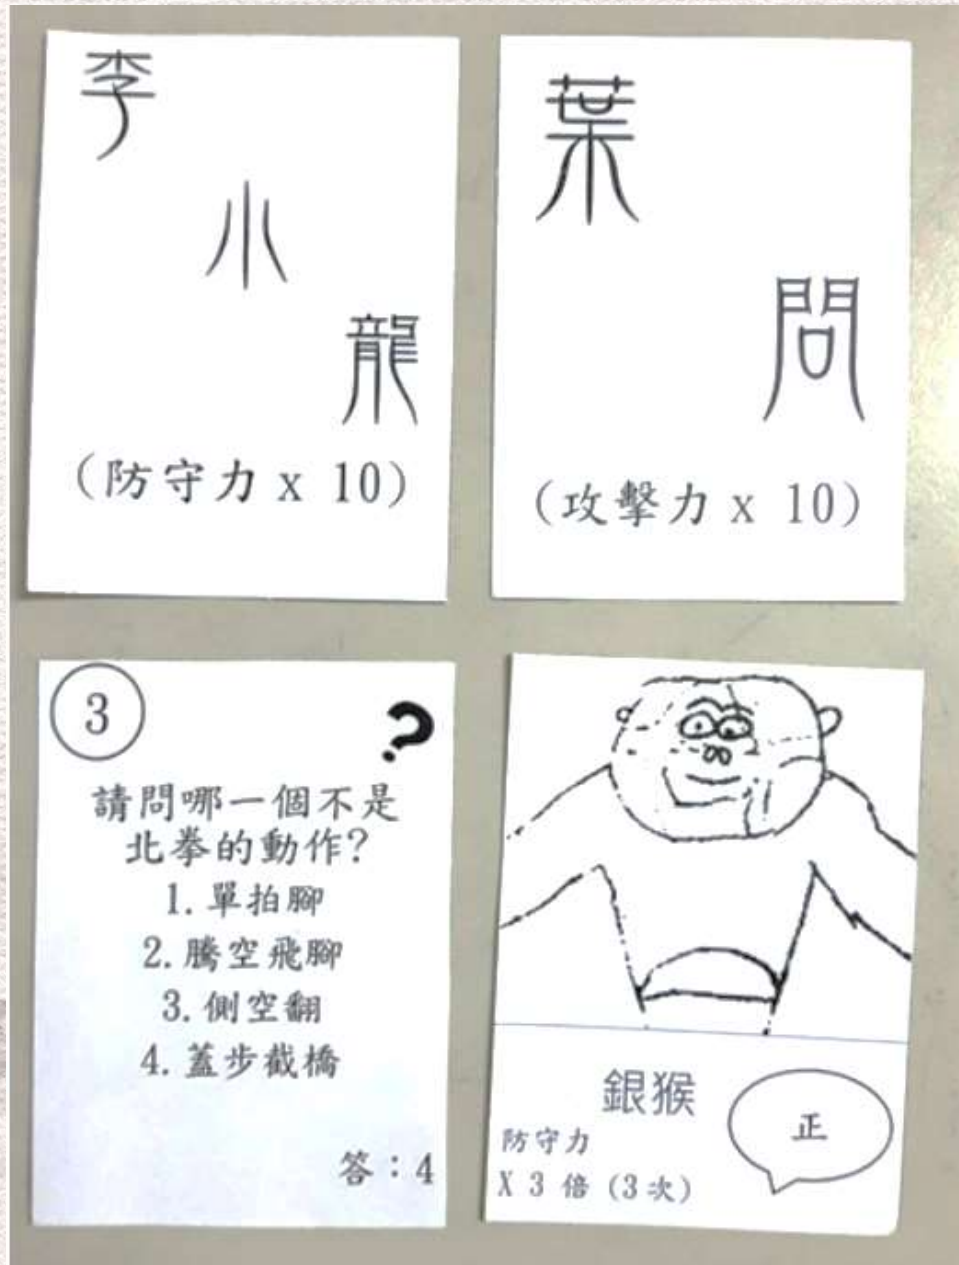 李
小
龍
(防守力 x 10)
葉
問
(攻擊力 x 10)
3
?
請問哪一個不是
北拳的動作?
1. 單拍腳
2. 騰空飛腳
3. 側空翻
4. 蓋步截橋
答：4
銀猴
正
防守力
X 3 倍 (3次)